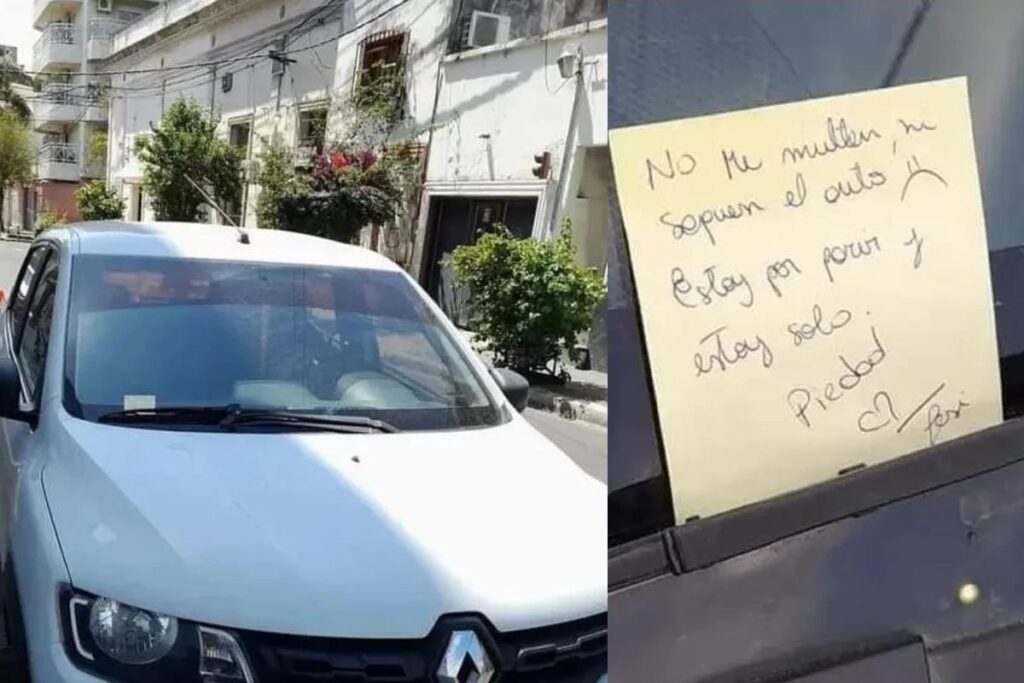 No me multen, ni
saquen el auto :(
Estoy por parir y
estoy solo.
Piedad!